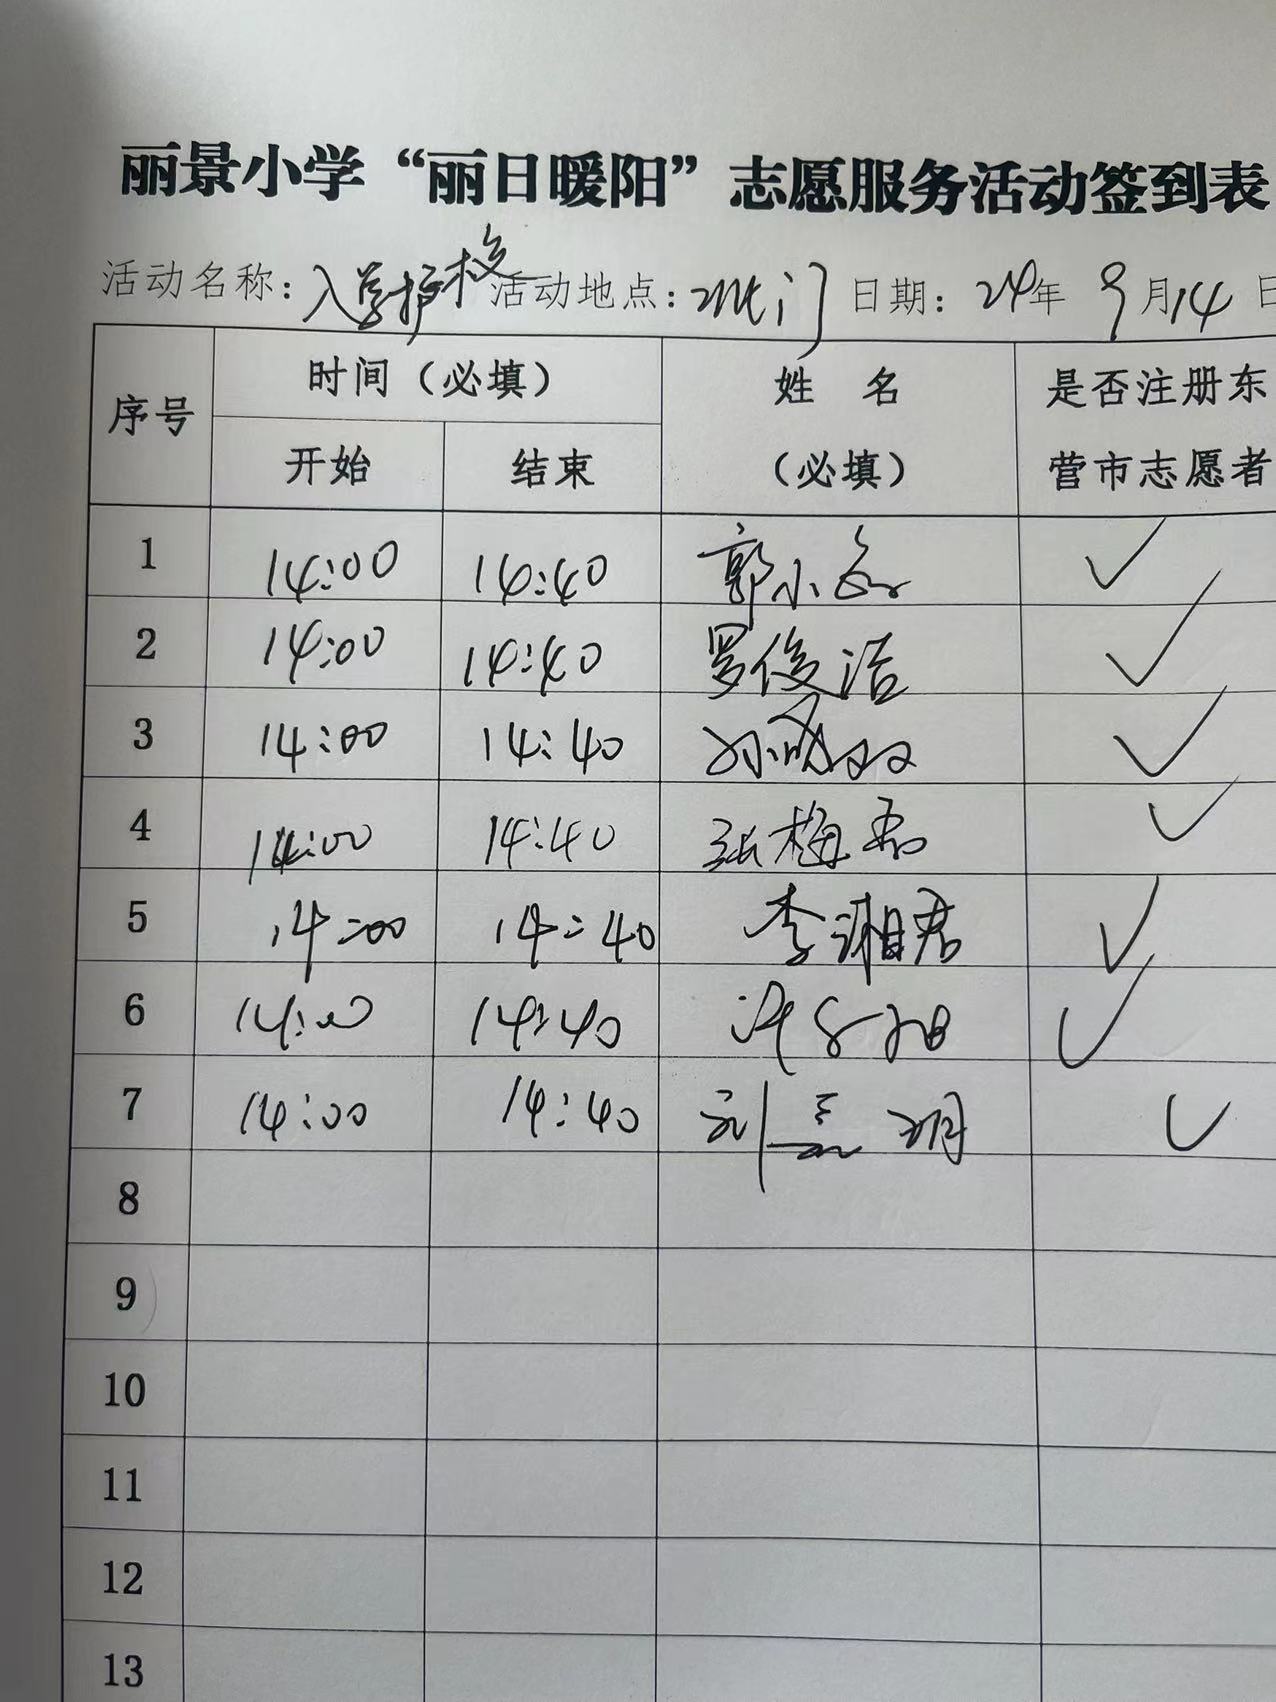 丽景小学“丽日暖阳”志愿服务活动签到表
活动名称：入学护校 活动地点： 门 日期：24年 9月14日
序号 时间（必填） 姓 名（必填） 是否注册东营市志愿者
开始 结束
1 14:00 14:40 郭小 ✓
2 14:00 14:40 罗俊洁 ✓
3 14:00 14:40 孙 ✓
4 14:00 14:40 张梅 ✓
5 14:00 14:40 李湘君 ✓
6 14:00 14:40 ✓
7 14:00 14:40 刘孟 ✓
8
9
10
11
12
13